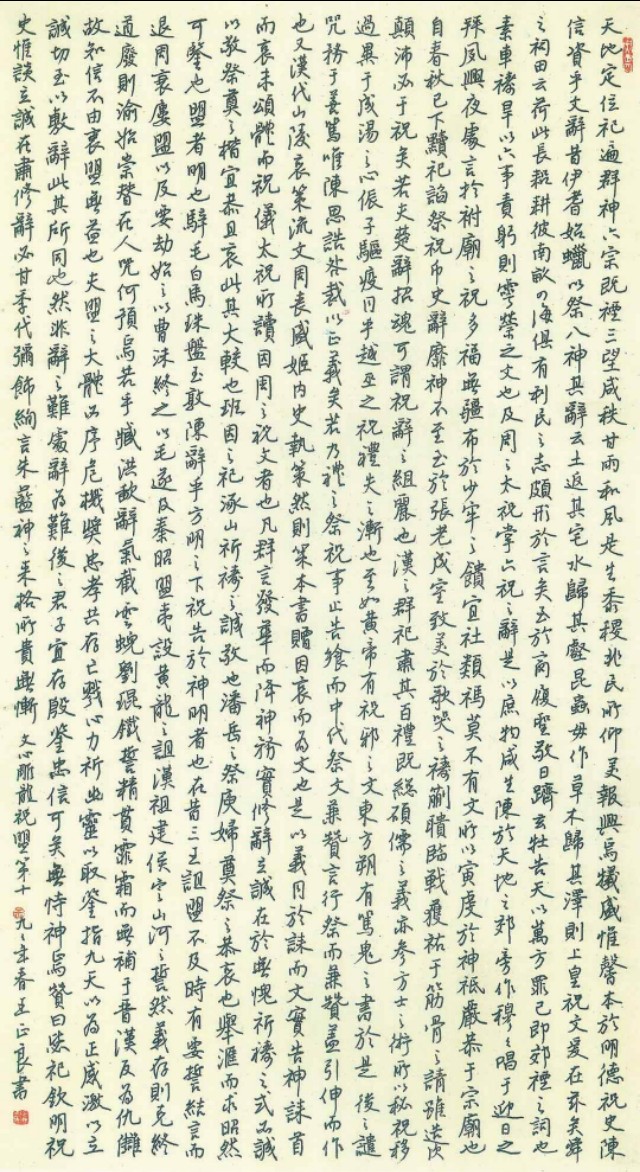 天地定位祀遍群神六宗既禋三望咸秩甘雨和風是生黍稷兆民所仰美報興焉犧盛惟馨本於明德祝史陳
信資乎文辭昔伊耆始蠟以祭八神其辭云土返其宅水歸其壑昆蟲毋作草木歸其澤則上皇祝文爰在茲矣舜
之祠田云荷此長耜耕彼南畝四海俱有利民之志頗形於言矣至於商履聖敬日躋玄牡告天以萬方罪己即郊禋之詞也
素車禱旱以六事責躬則雩禜之文也及周之太祝掌六祝之辭是以庶物咸生陳於天地之郊旁作穆穆唱于迎日之
拜夙興夜處言於祔廟之祝多福無疆布於少牢之饋宜社類禡莫不有文所以寅虔於神祇嚴恭于宗廟也
自春秋已下黷祀諂祭祝币史辭靡神不至至於張老成室致美於歌哭之禱蒯聵臨戰獲祐于筋骨之請雖造次
顛沛必于祝矣若夫楚辭招魂可謂祝辭之組麗也漢之群祀肅其百禮既總碩儒之義亦參方士之術所以秘祝移
過異于成湯之心侲子驅疫同乎越巫之祝禮失之漸也至如黃帝有祝邪之文東方朔有罵鬼之書於是後之譴
咒務于善罵唯陳思誥咎裁以正義矣若乃禮之祭祝事止告饗而中代祭文兼贊言行祭而兼贊蓋引伸而作
也又漢代山陵哀策流文周喪盛姬內史執策然則策本書贈因哀而為文也是以義同於誄而文實告神誄首
而哀末頌體而祝儀太祝所讀因周之祝文者也凡群言發華而降神務實修辭立誠在於無愧祈禱之式必誠
以敬祭奠之楷宜恭且哀此其大較也班固之祀涿山祈禱之誠敬也潘岳之祭庾婦奠祭之恭哀也舉滙而求昭然
可鑒也盟者明也騂毛白馬珠盤玉敦陳辭乎方明之下祝告於神明者也在昔三王詛盟不及時有要誓結言而
退周衰屢盟以及要劫始之以曹沫終之以毛遂及秦昭盟夷設黃龍之詛漢祖建侯定山河之誓然義存則克終
道廢則渝始崇替在人咒何預焉若乎臧洪歃辭氣截雲蜺劉琨鐵誓精貫霏霜而無補于晉漢反為仇讎
故知信不由衷盟無益也夫盟之大體必序危機獎忠孝共存亡戮心力祈幽靈以取鑒指九天以為正感激以立
誠切至以敷辭此其所同也然非辭之難處辭為難後之君子宜存殷鑒忠信可矣無恃神焉贊曰毖祀欽明祝
史惟談立誠在肅修辭必甘季代彌飾絢言朱藍神之來格所貴無慚 文心雕龍祝盟第十 九九年春王正良書